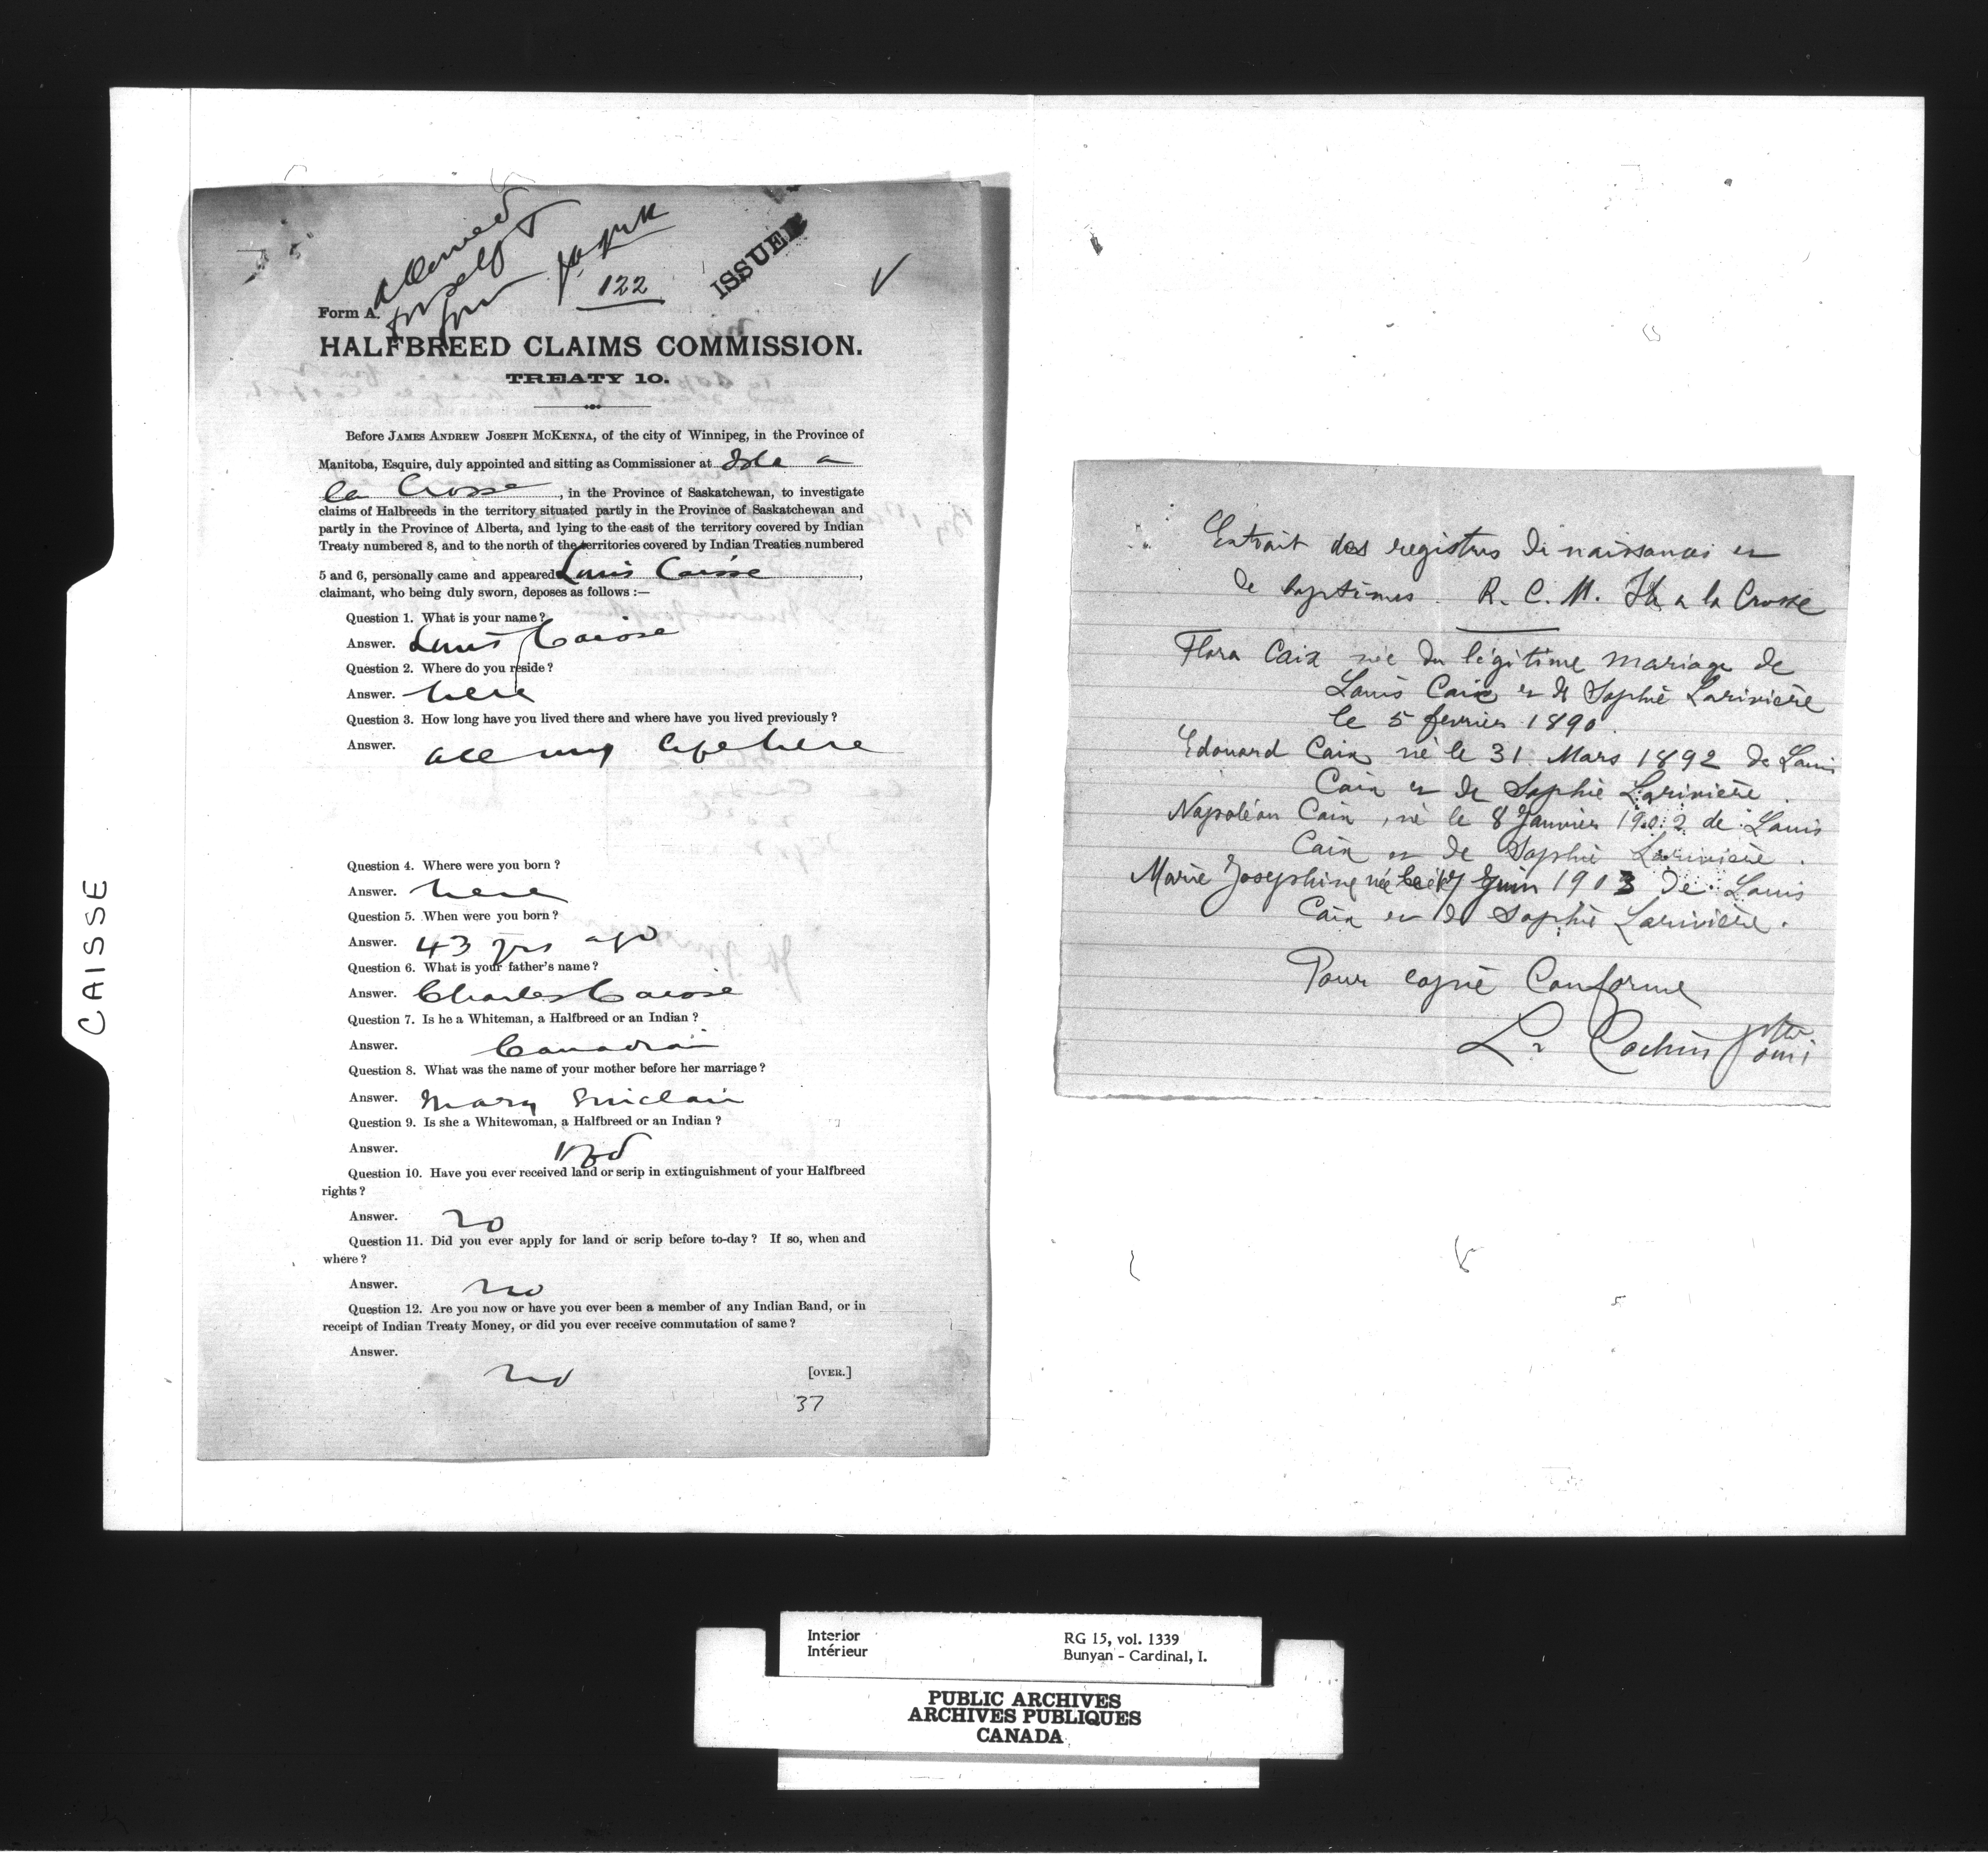 CAISSE
allowed
for self &
four
122
ISSUED
Form A.
HALFBREED CLAIMS COMMISSION.
TREATY 10.
Before JAMES ANDREW JOSEPH MCKENNA, of the city of Winnipeg, in the Province of
Manitoba, Esquire, duly appointed and sitting as Commissioner at Isle a
la Crosse, in the Province of Saskatchewan, to investigate
claims of Halfbreeds in the territory situated partly in the Province of Saskatchewan and
partly in the Province of Alberta, and lying to the east of the territory covered by Indian
Treaty numbered 8, and to the north of the territories covered by Indian Treaties numbered
5 and 6, personally came and appeared Louis Caisse,
claimant, who being duly sworn, deposes as follows :—
Question 1. What is your name?
Answer. Louis Caisse
Question 2. Where do you reside?
Answer. here
Question 3. How long have you lived there and where have you lived previously?
Answer. all my life here
Question 4. Where were you born?
Answer. here
Question 5. When were you born?
Answer. 43 yrs ago
Question 6. What is your father's name?
Answer. Charles Caisse
Question 7. Is he a Whiteman, a Halfbreed or an Indian?
Answer. Canadian
Question 8. What was the name of your mother before her marriage?
Answer. Mary Sinclair
Question 9. Is she a Whitewoman, a Halfbreed or an Indian?
Answer. Hbd
Question 10. Have you ever received land or scrip in extinguishment of your Halfbreed
rights?
Answer. no
Question 11. Did you ever apply for land or scrip before to-day? If so, when and
where?
Answer. no
Question 12. Are you now or have you ever been a member of any Indian Band, or in
receipt of Indian Treaty Money, or did you ever receive commutation of same?
Answer.
no
[OVER.]
37
Extrait des registres de naissances et
de baptêmes. R. C. M. Ile a la Crosse
Flora Caix née du légitime mariage de
Louis Caix et de Sophie Larivière
le 5 fevrier 1890.
Edouard Caix né le 31 Mars 1892 de Louis
Caix et de Sophie Larivière.
Napoléon Caix, né le 8 Janvier 1902 de Louis
Caix et de Sophie Larivière.
Marie Josephine née le 17 Juin 1903 de Louis
Caix et de Sophie Larivière.
Pour copie Conforme
L. Cochin ptre
omi
Interior
Intérieur
RG 15, vol. 1339
Bunyan - Cardinal, I.
PUBLIC ARCHIVES
ARCHIVES PUBLIQUES
CANADA